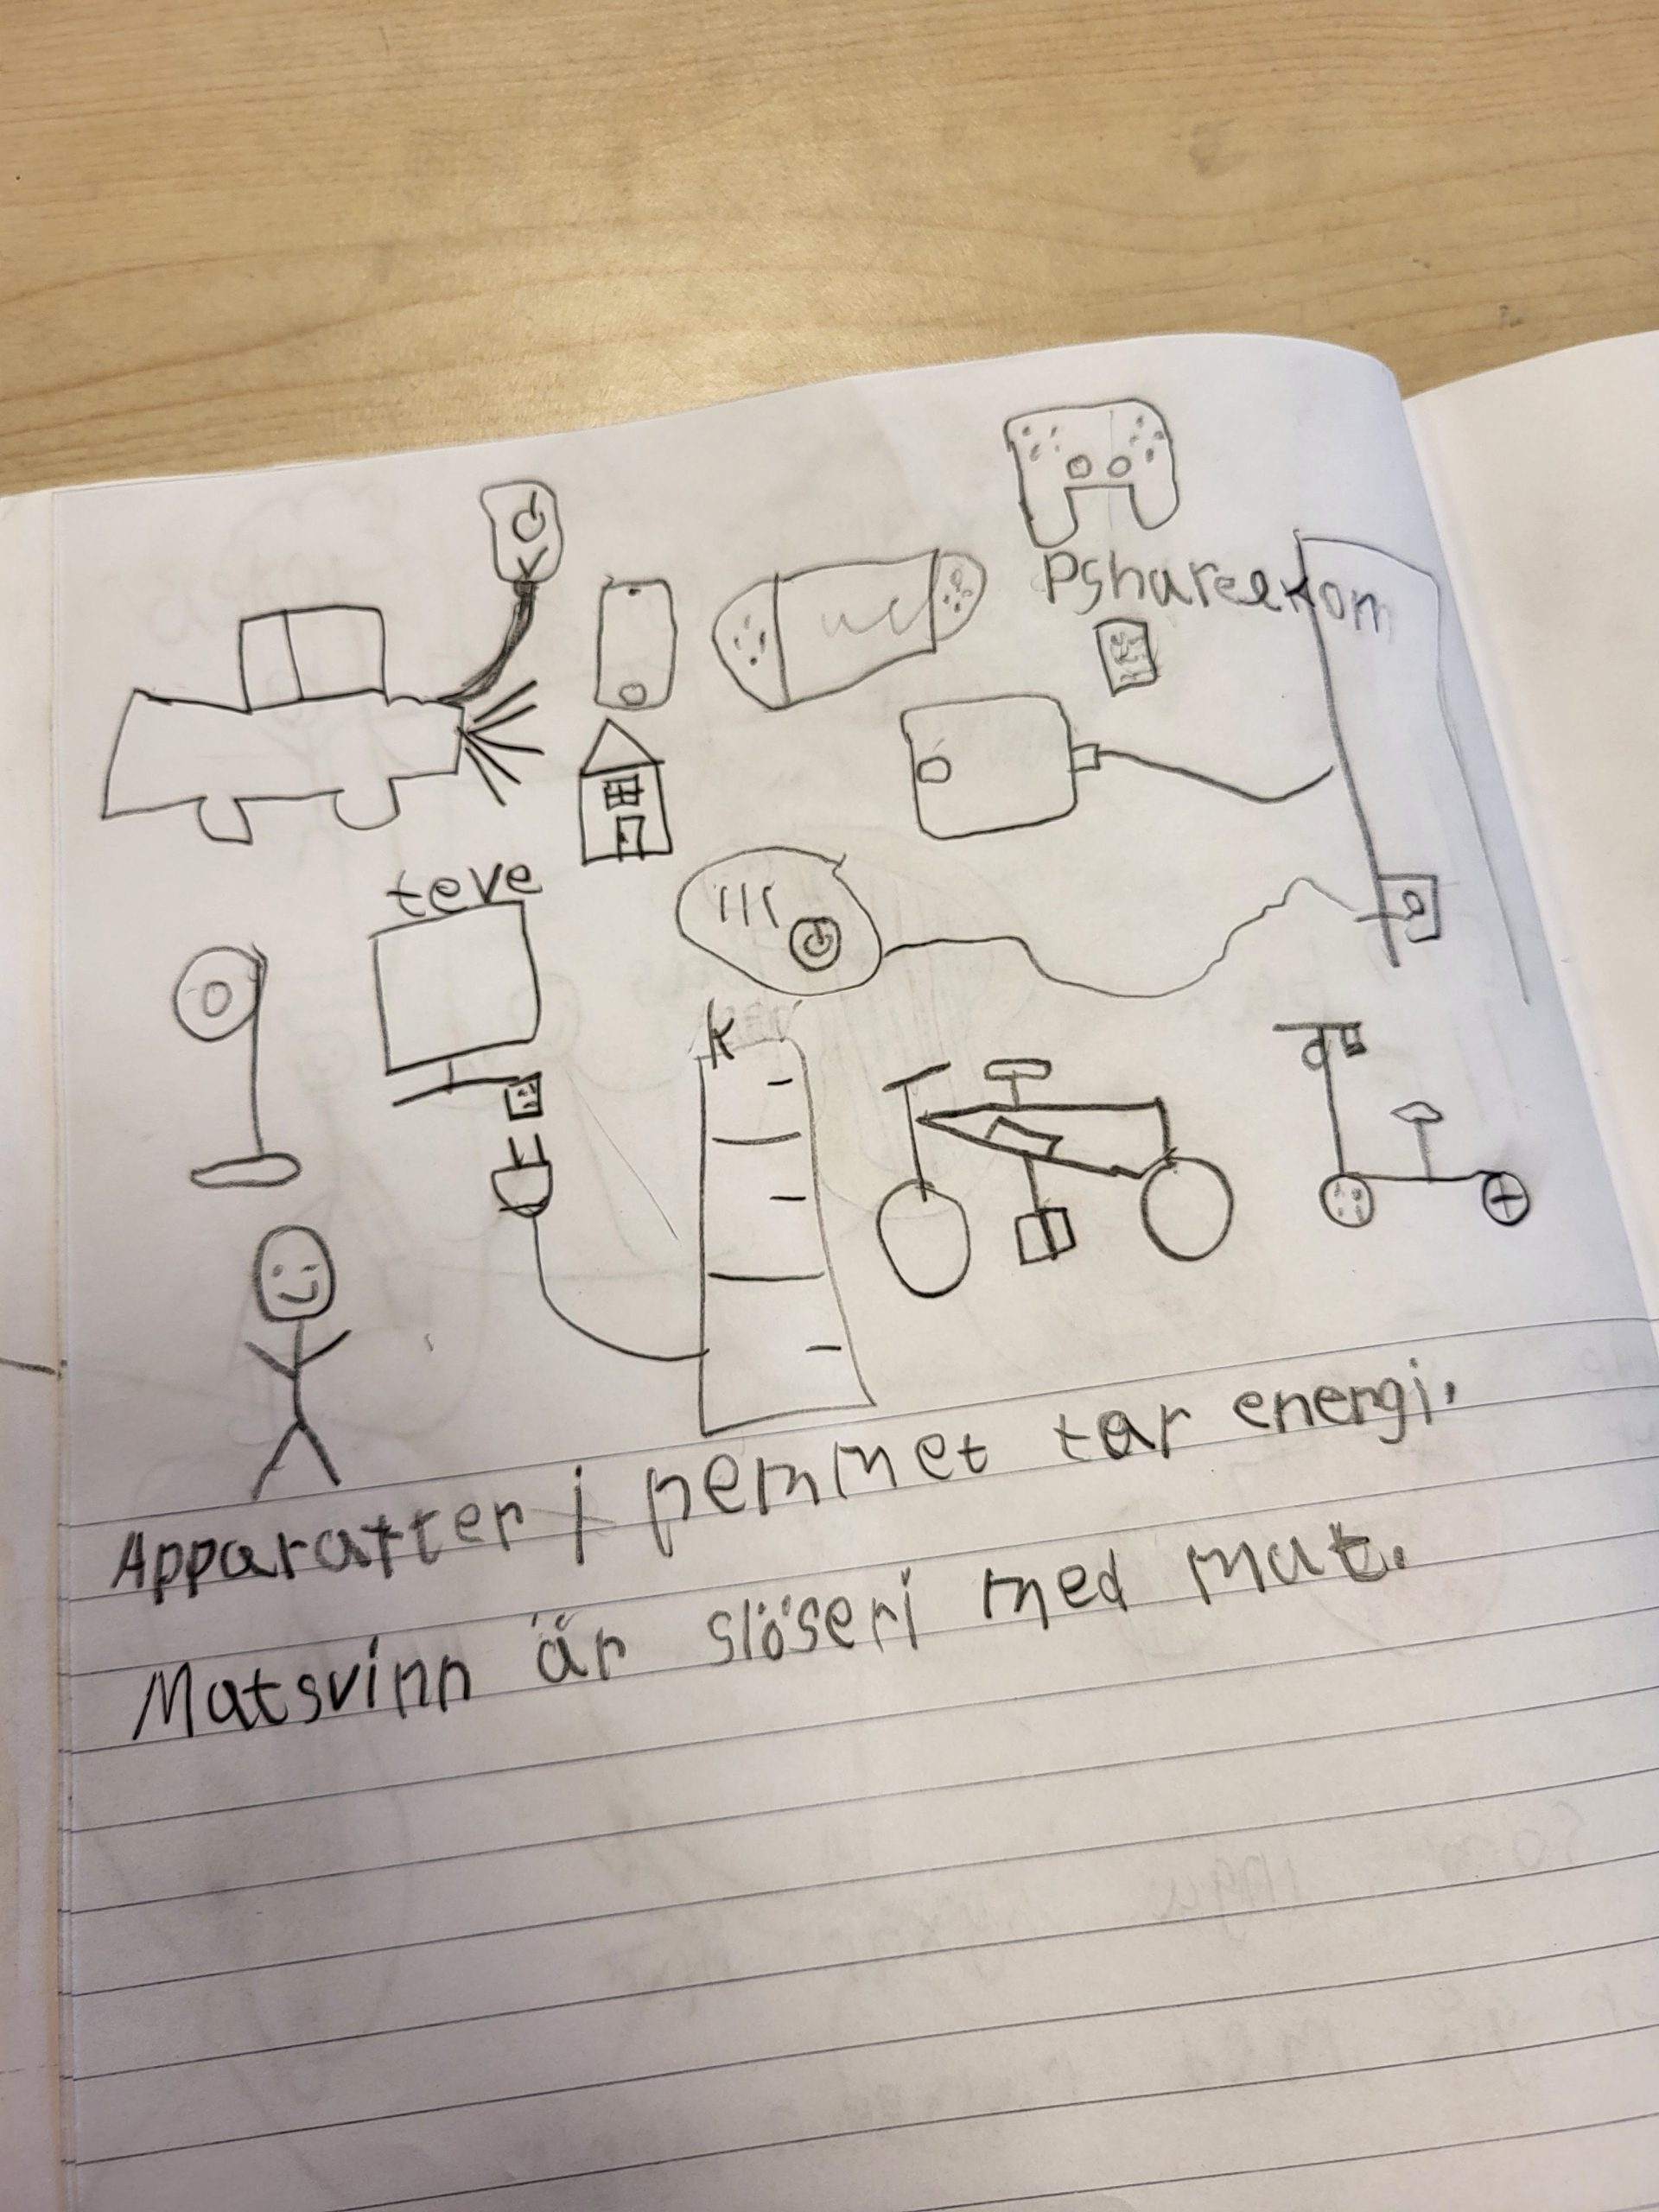 teve
k
Apparatter i hemmet tar energi.
Matsvinn är slöseri med mat.